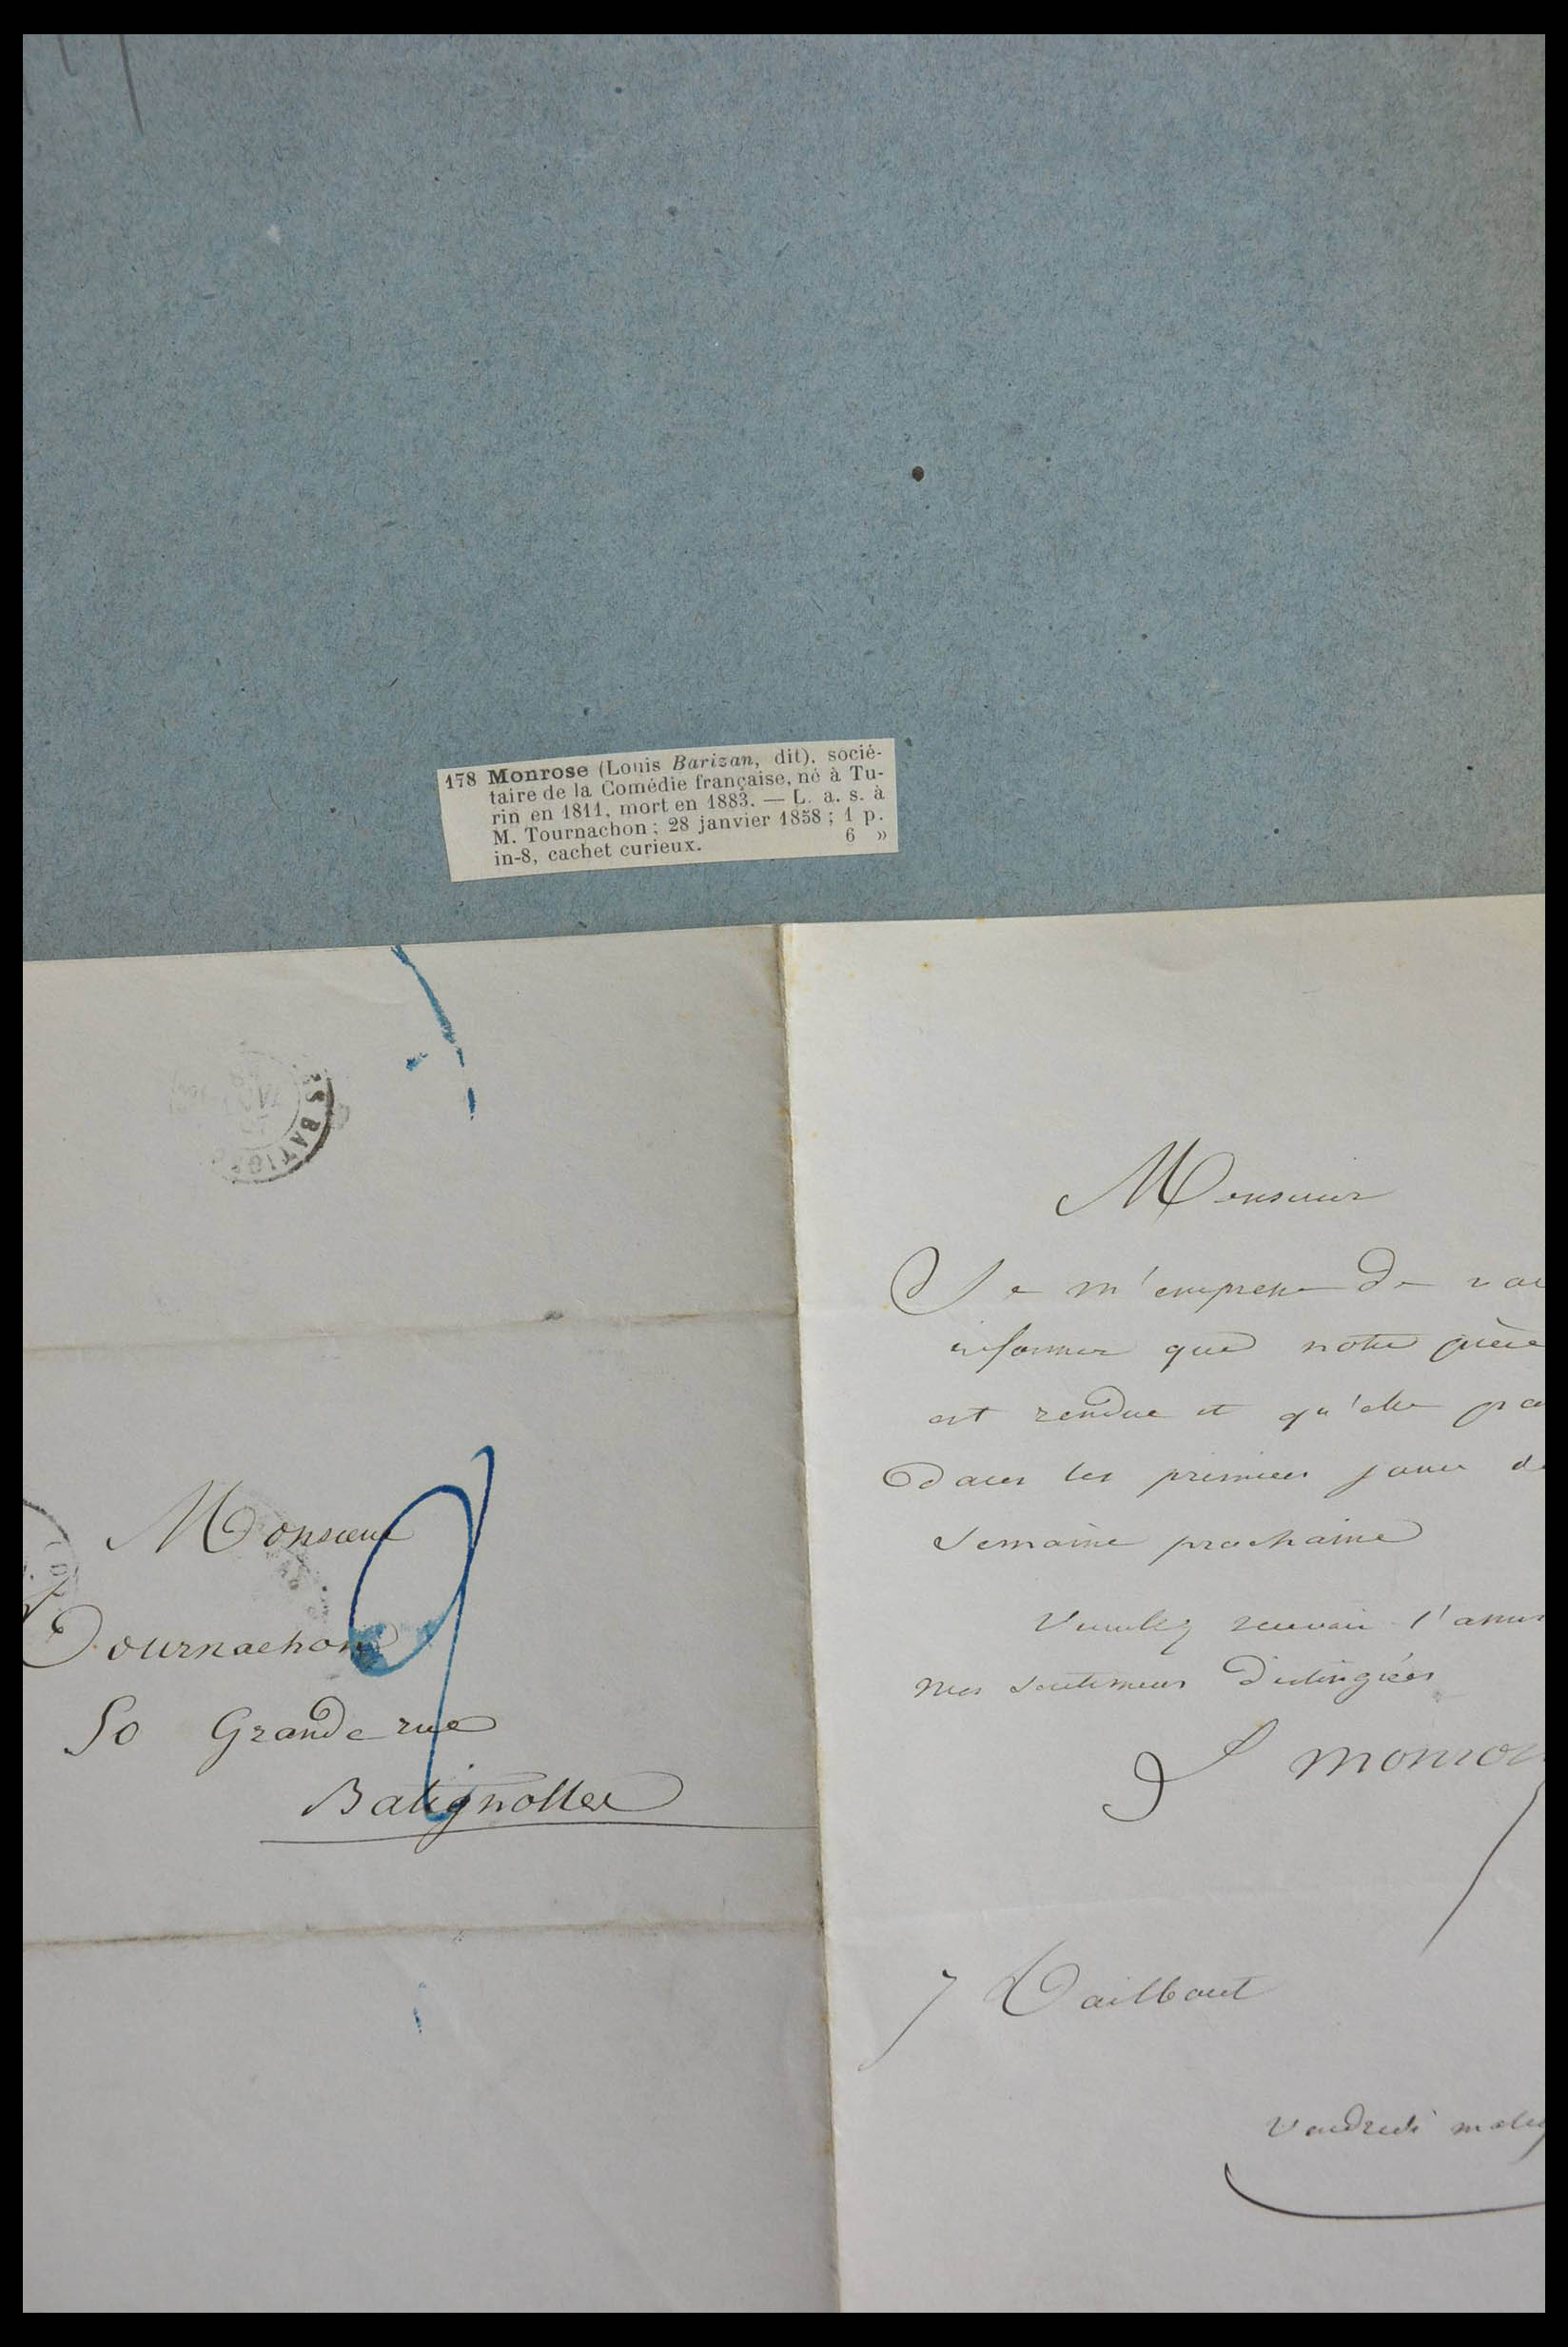 178 Monrose (Louis Barizan, dit), socié-
taire de la Comédie française, né à Tu-
rin en 1811, mort en 1883. — L. a. s. à
M. Tournachon ; 28 janvier 1858 ; 1 p.
in-8, cachet curieux. 6 »
S BATIG
Monsieur
Tournachon
50 Grande rue
Batignolles
Monsieur
Je m'empresse de
informer que notre pièce
est rendue et qu'elle
dans les premiers jours
semaine prochaine
Veuillez recevoir
mes sentimens distingués
7 Taitbout
Vendredi